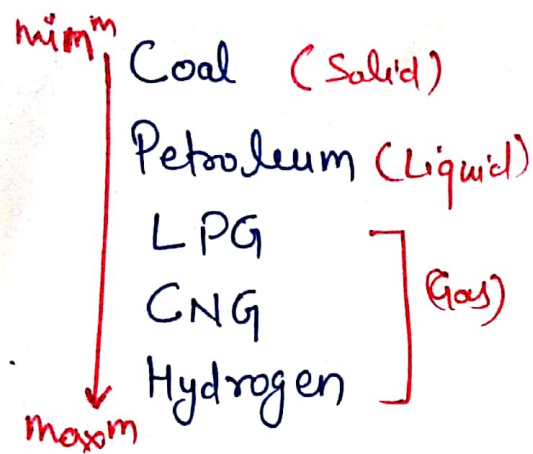 minm^m
Coal (Solid)
Petroleum (Liquid)
LPG
CNG (Gas)
Hydrogen
maxm^m